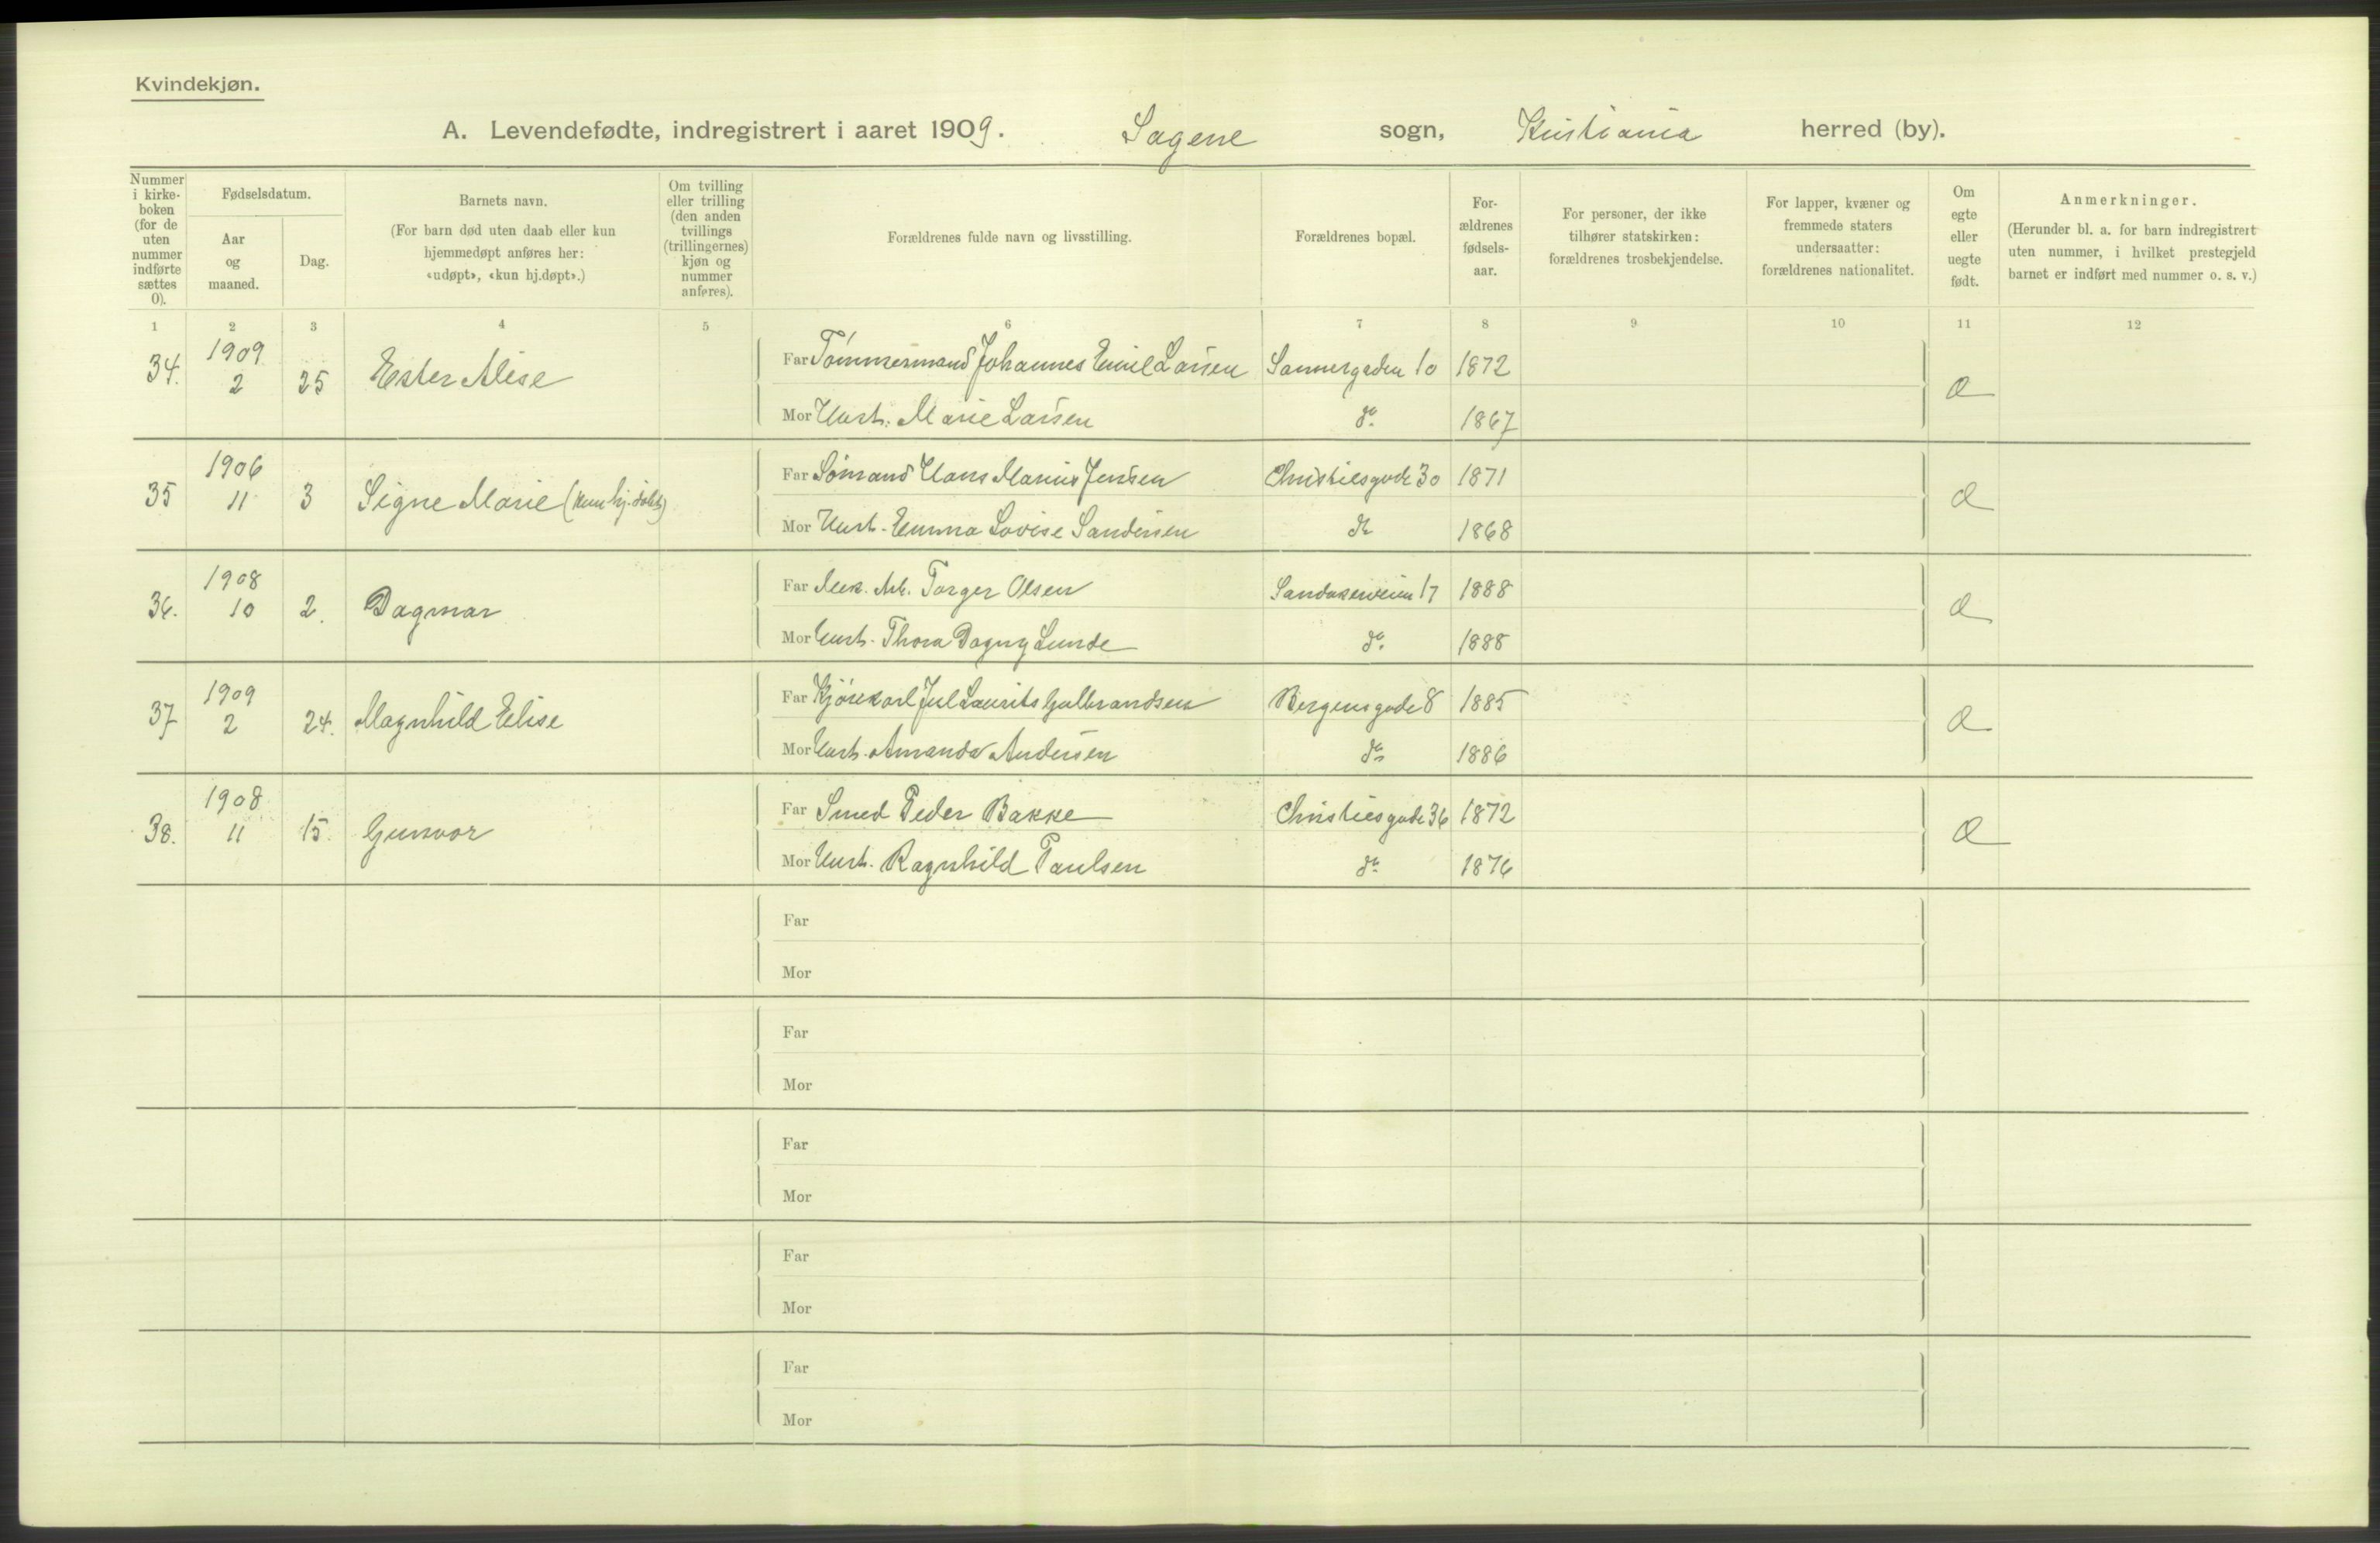 Kvindekjøn.
A. Levendefødte, indregistrert i aaret 1909. Sagene sogn, Kristiania herred (by).
Nummer i kirke-boken (for de uten nummer indførte sættes 0).
Fødselsdatum.
Aar og maaned.
Dag.
Barnets navn.
(For barn død uten daab eller kun hjemmedøpt anføres her: «udøpt», «kun hj.døpt».)
Om tvilling eller trilling (den anden tvillings (trillingernes) kjøn og nummer anføres).
Forældrenes fulde navn og livsstilling.
Forældrenes bopæl.
For-ældrenes fødsels-aar.
For personer, der ikke tilhører statskirken: forældrenes trosbekjendelse.
For lapper, kvæner og fremmede staters undersaatter: forældrenes nationalitet.
Om egte eller uegte født.
Anmerkninger.
(Herunder bl. a. for barn indregistrert uten nummer, i hvilket prestegjeld barnet er indført med nummer o. s. v.)
1 2 3 4 5 6 7 8 9 10 11 12
34. 1909 2 25 Ester Alise Far Tømmermand Johannes Emil Larsen Sannergaden 10 1872
Mor Hust. Marie Larsen do. 1867
35 1906 11 3 Signe Marie (kun hj. døbt) Far Sømand Hans Marius Jensen Christiesgade 30 1871
Mor Hust. Emma Lovise Sandersen do 1868
36. 1908 10 2. Dagmar Far Mek. Arb. Torger Olsen Sandakerveien 17 1888
Mor Hust. Thora Dagny Lunde do. 1888
37 1909 2 24. Magnhild Elise Far Kjørekarl Jul Laurits Gulbrandsen Bergensgade 8 1885
Mor Hust. Amanda Andersen do 1886
38. 1908 11 15. Gunvor Far Smed Peder Bakke Christiesgade 36 1872
Mor Hust. Ragnhild Paulsen do 1876
Far
Mor
Far
Mor
Far
Mor
Far
Mor
Far
Mor